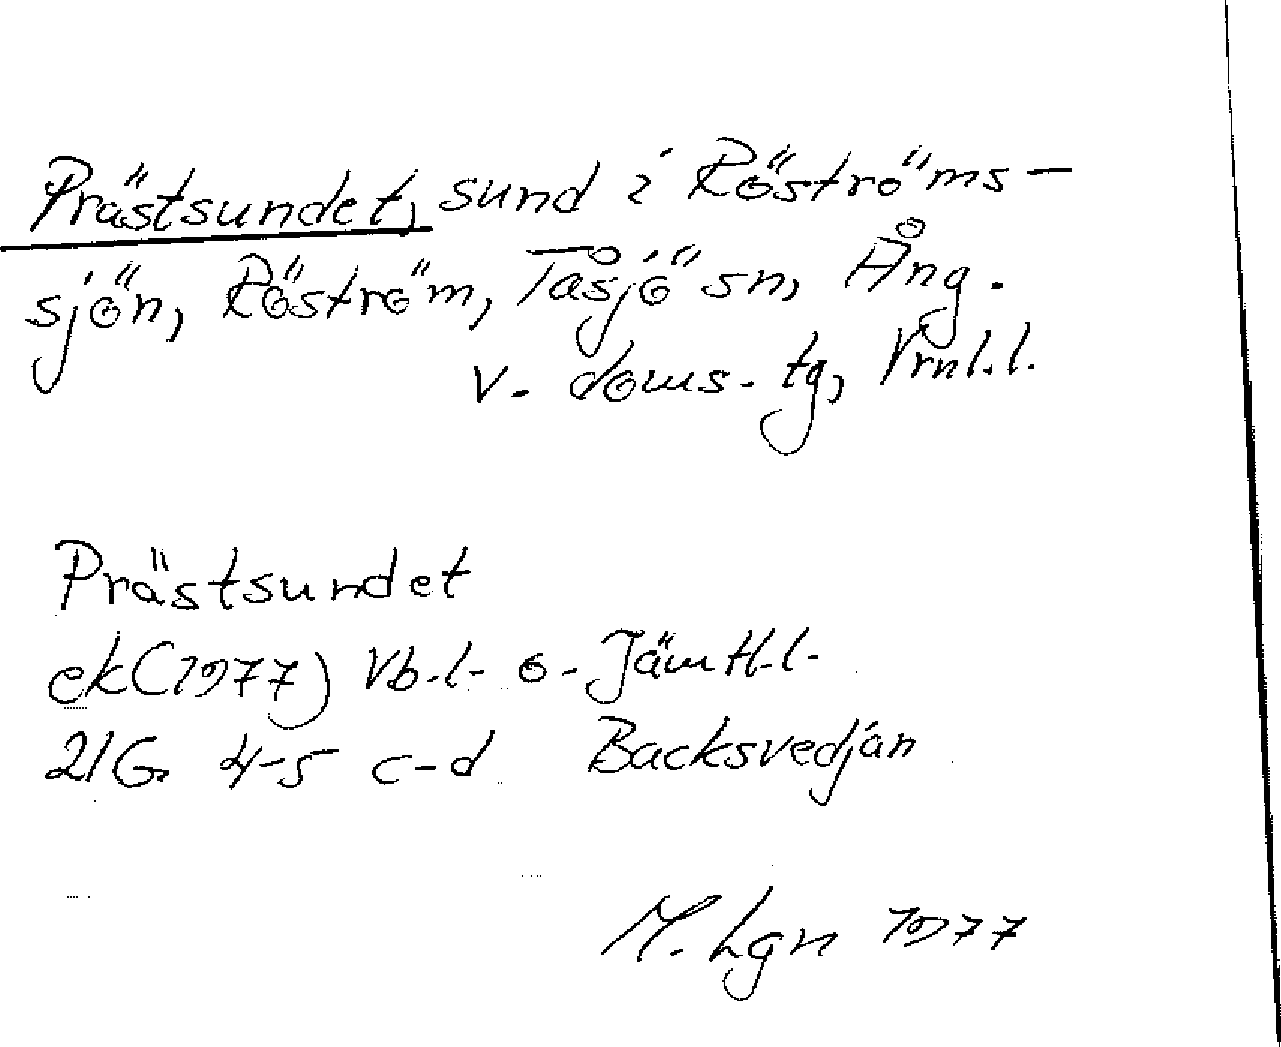 Prästsundet, sund i Röströms-
sjön, Röström, Tåsjö sn, Ång.
v. doms. tg, Vrnl. l.
Prästsundet
ek (1977) Vb. l. o. Jämtl. l.
21G 4-5 c-d Backsvedjan
M. Lgn 1977